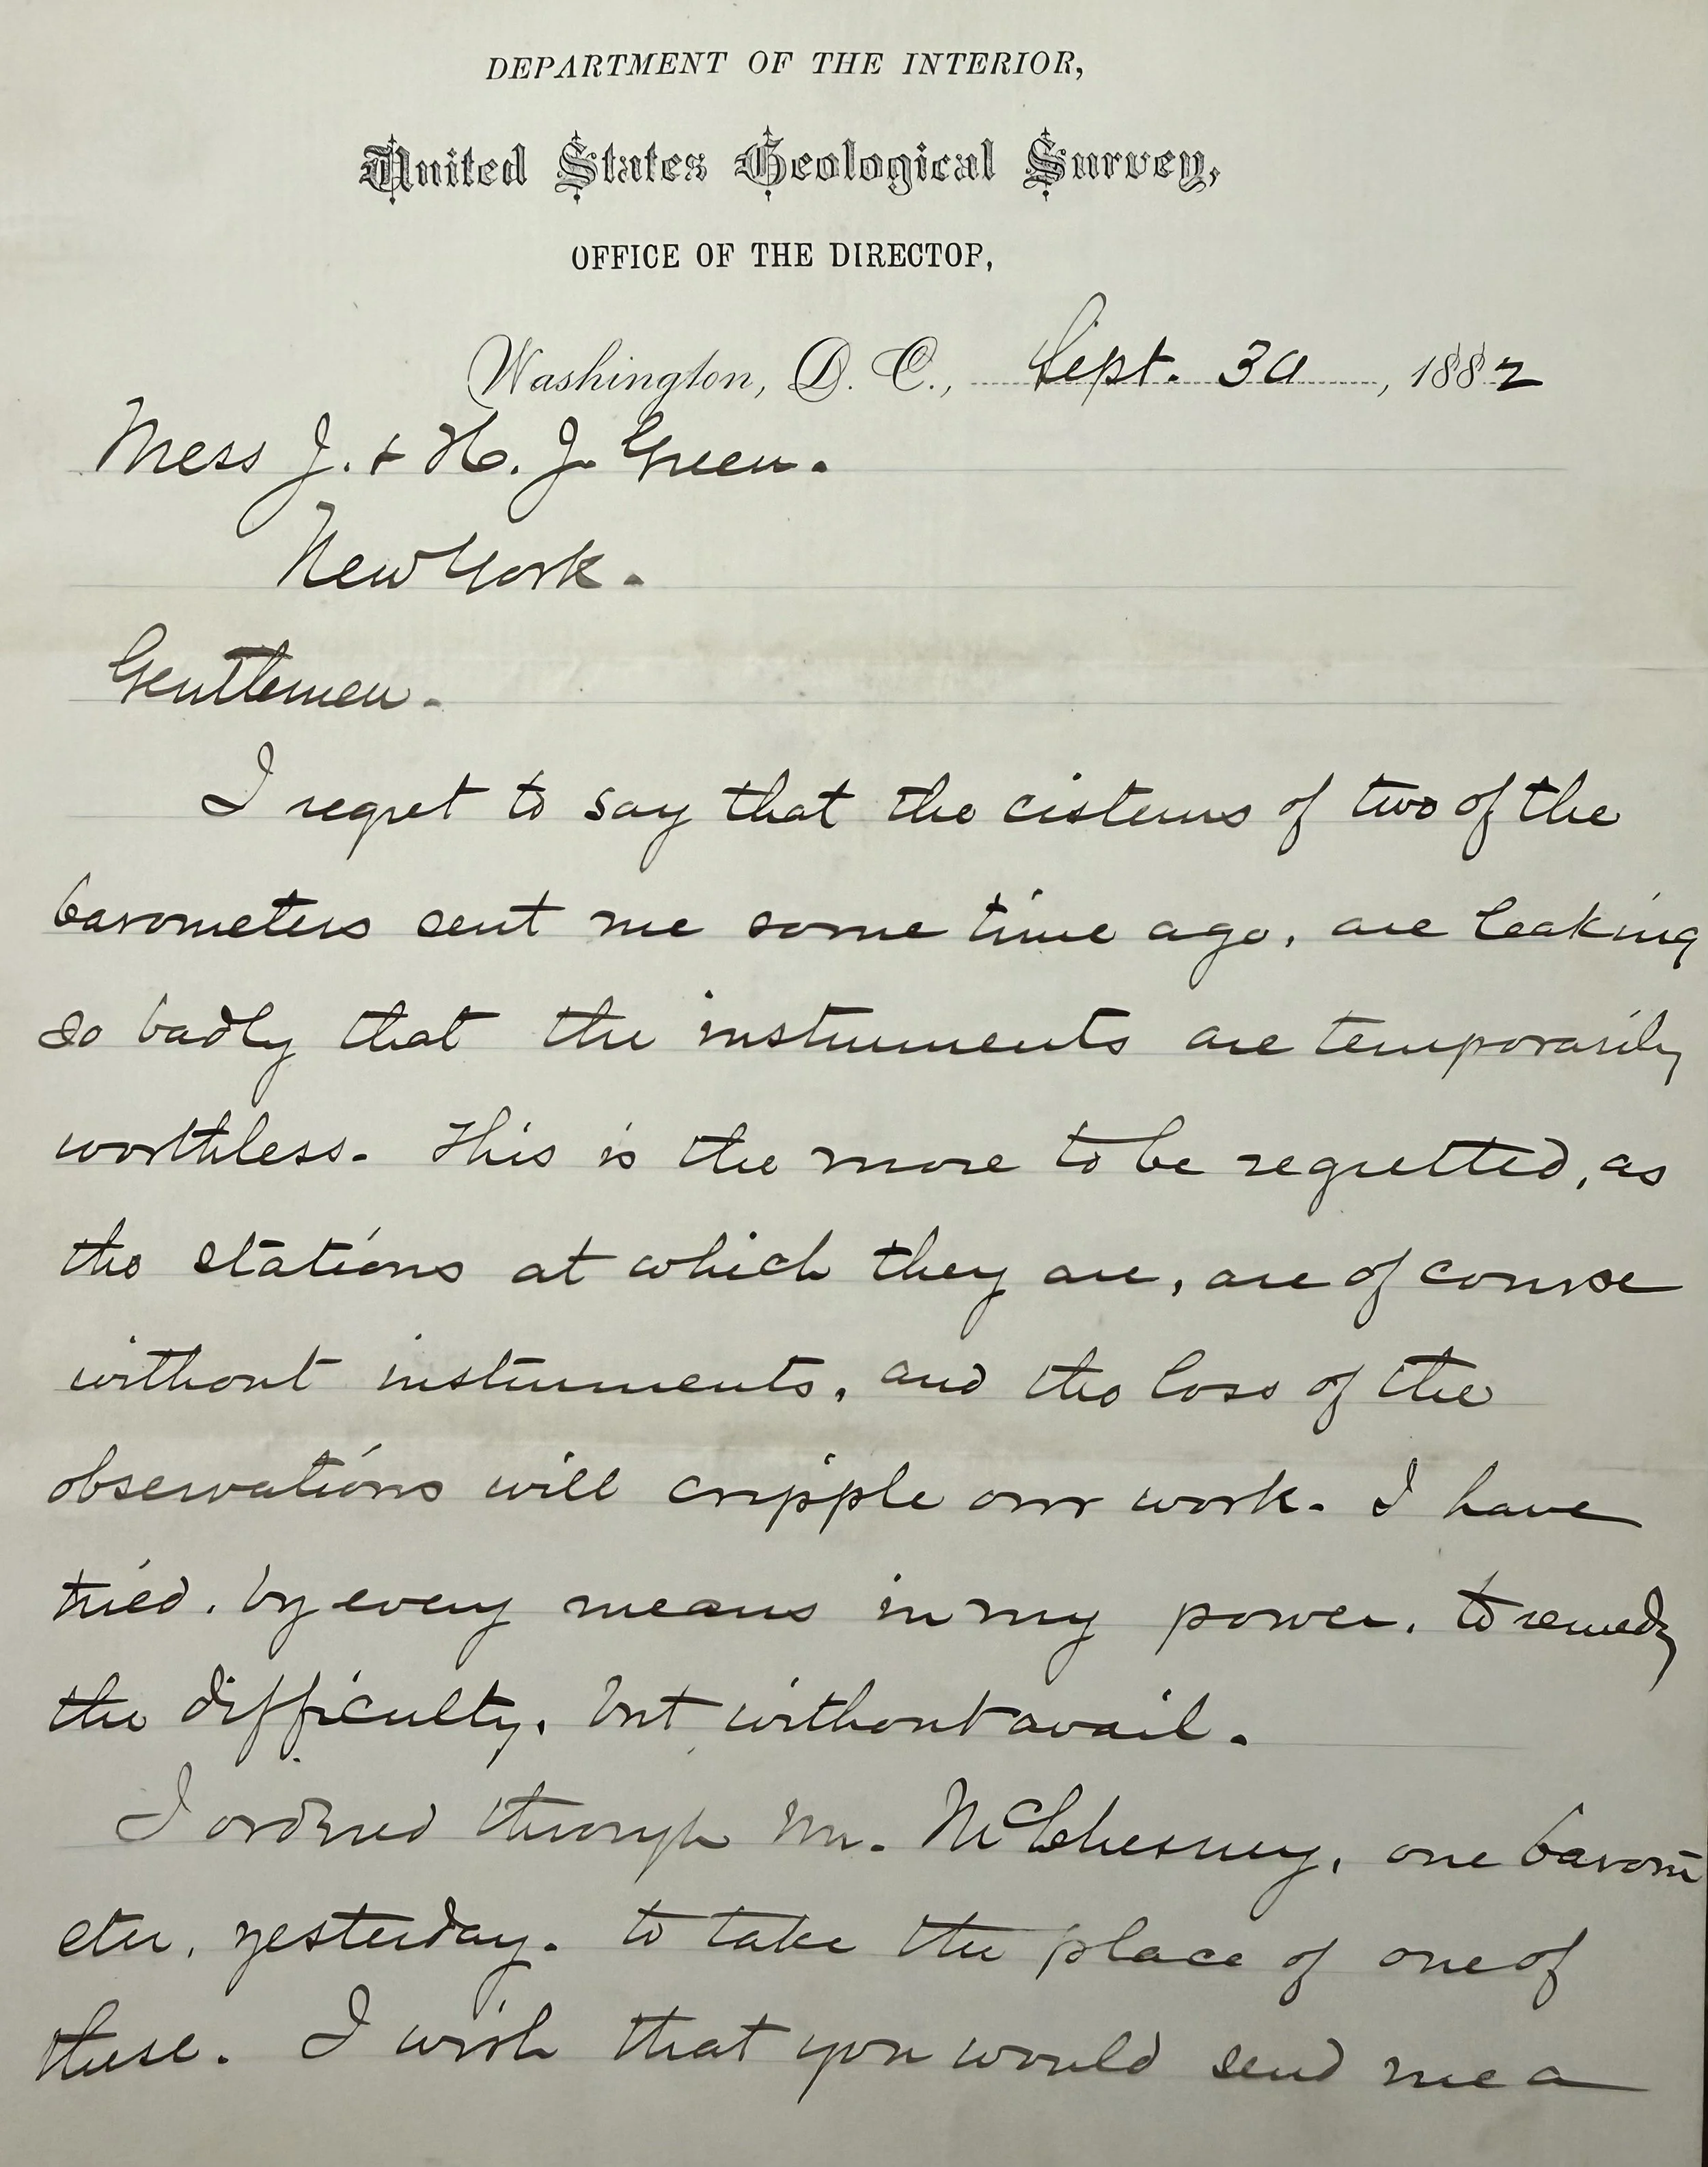 DEPARTMENT OF THE INTERIOR,
United States Geological Survey,
OFFICE OF THE DIRECTOR,
Washington, D. C., Sept. 30, 1882
Mess J. & H. J. Green.
New York.
Gentlemen.
I regret to say that the cisterns of two of the
barometers sent me some time ago, are leaking
so badly that the instruments are temporarily
worthless. This is the more to be regretted, as
the stations at which they are, are of course
without instruments, and the loss of the
observations will cripple our work. I have
tried, by every means in my power, to remedy
the difficulty, but without avail.
I ordered through Mr. McChesney, one barom
eter, yesterday. to take the place of one of
these. I wish that you would send me a